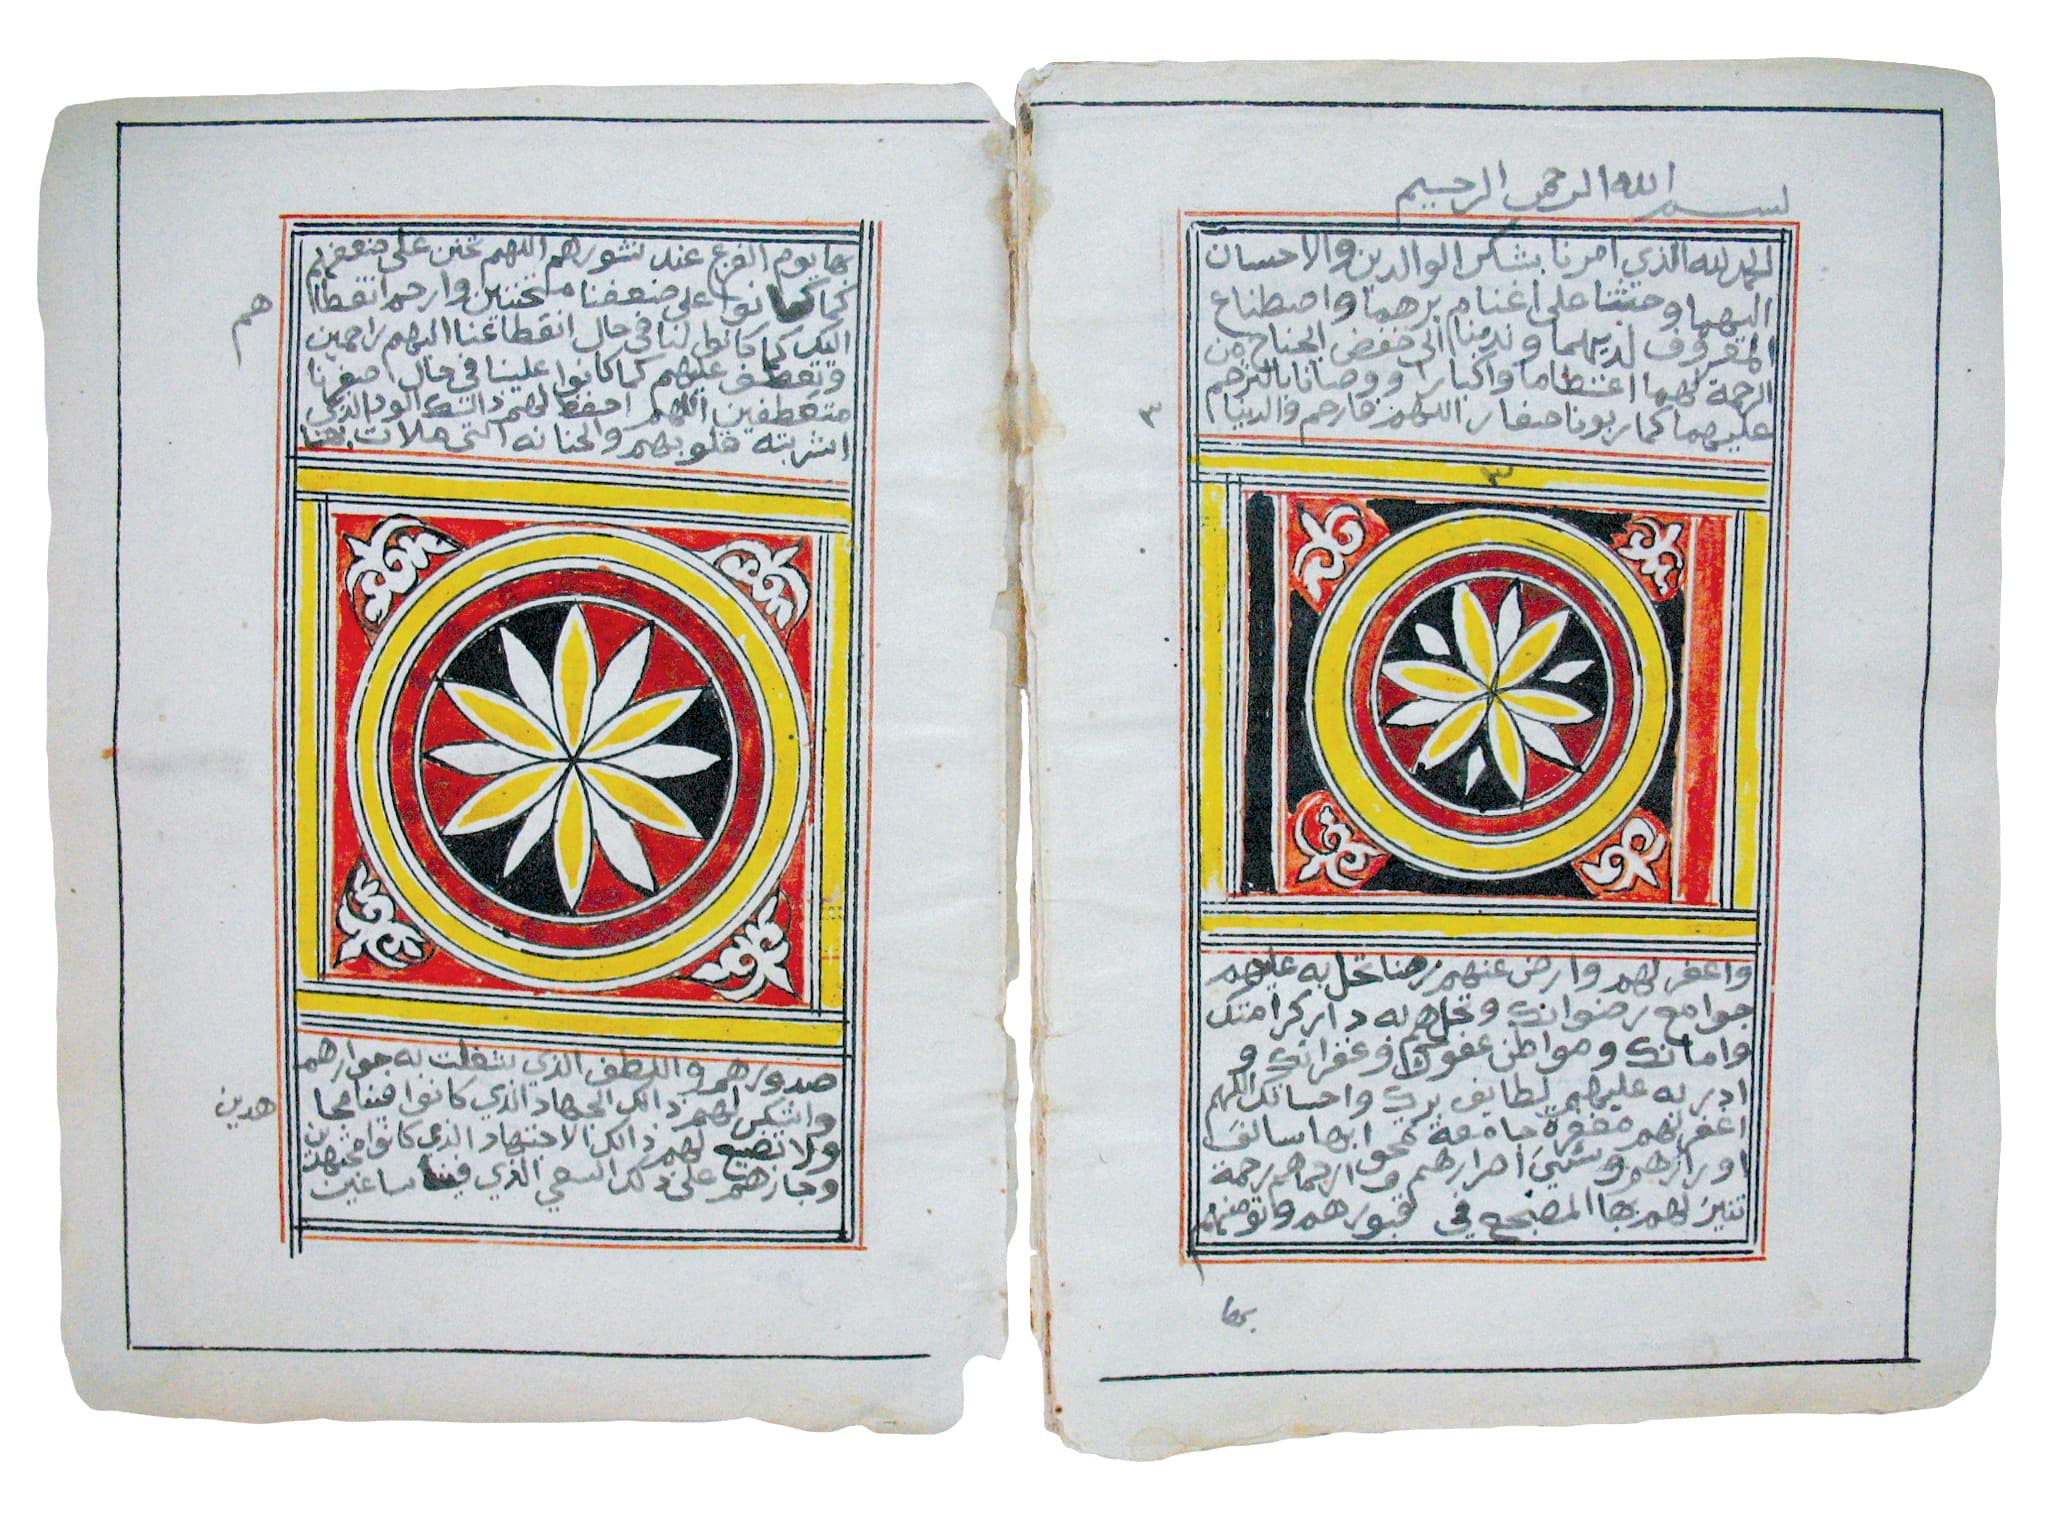 بسم الله الرحمن الرحيم
الحمد لله الذي امرنا بشكر الوالدين والاحسان
اليهما وحثنا على اغتنام برهما واصطناع
المعروف لديهما وندبنا الى خفض الجناح من
الرحمة لهما اعظاما واكبارا ووصانا بالترحم
عليهما كما ربونا صغارا اللهم فارحم والدينا
٣
٣
واغفر لهم وارض عنهم رضا تحل به عليهم
جوامع رضوانك وتحلهم به دار كرامتك
وامانك ومواطن عفوك وغفرانك و
ادر به عليهم لطايف برك واحسانك اللهم
اغفر لهم مغفرة جامعة تمحو ابها سالف
اوزارهم وسيئ اصرارهم وارحمهم رحمة
تنير لهم بها المضجع في قبورهم وتومنهم
بها
بها يوم الفزع عند نشورهم اللهم تحنن على ضعفهم
كما كانوا على ضعفنا متحننين وارحم انقطا
هم
اليك كما كانوا لنا في حال انقطاعنا اليهم راحمين
وتعطف عليهم كما كانوا علينا في حال صغرنا
متعطفين اللهم احفظ لهم ذالك الود الذي
اشربته قلوبهم والحنانه التي ملات بها
صدورهم واللطف الذي شغلت به جوارحهم
واشكر لهم ذالك الجهاد الذي كانوا فينا مجا
هدين
ولا تضيع لهم ذالك الاجتهاد الذي كانوا مجتهدين
وجازهم على ذلك السعي الذي فينا ساعين